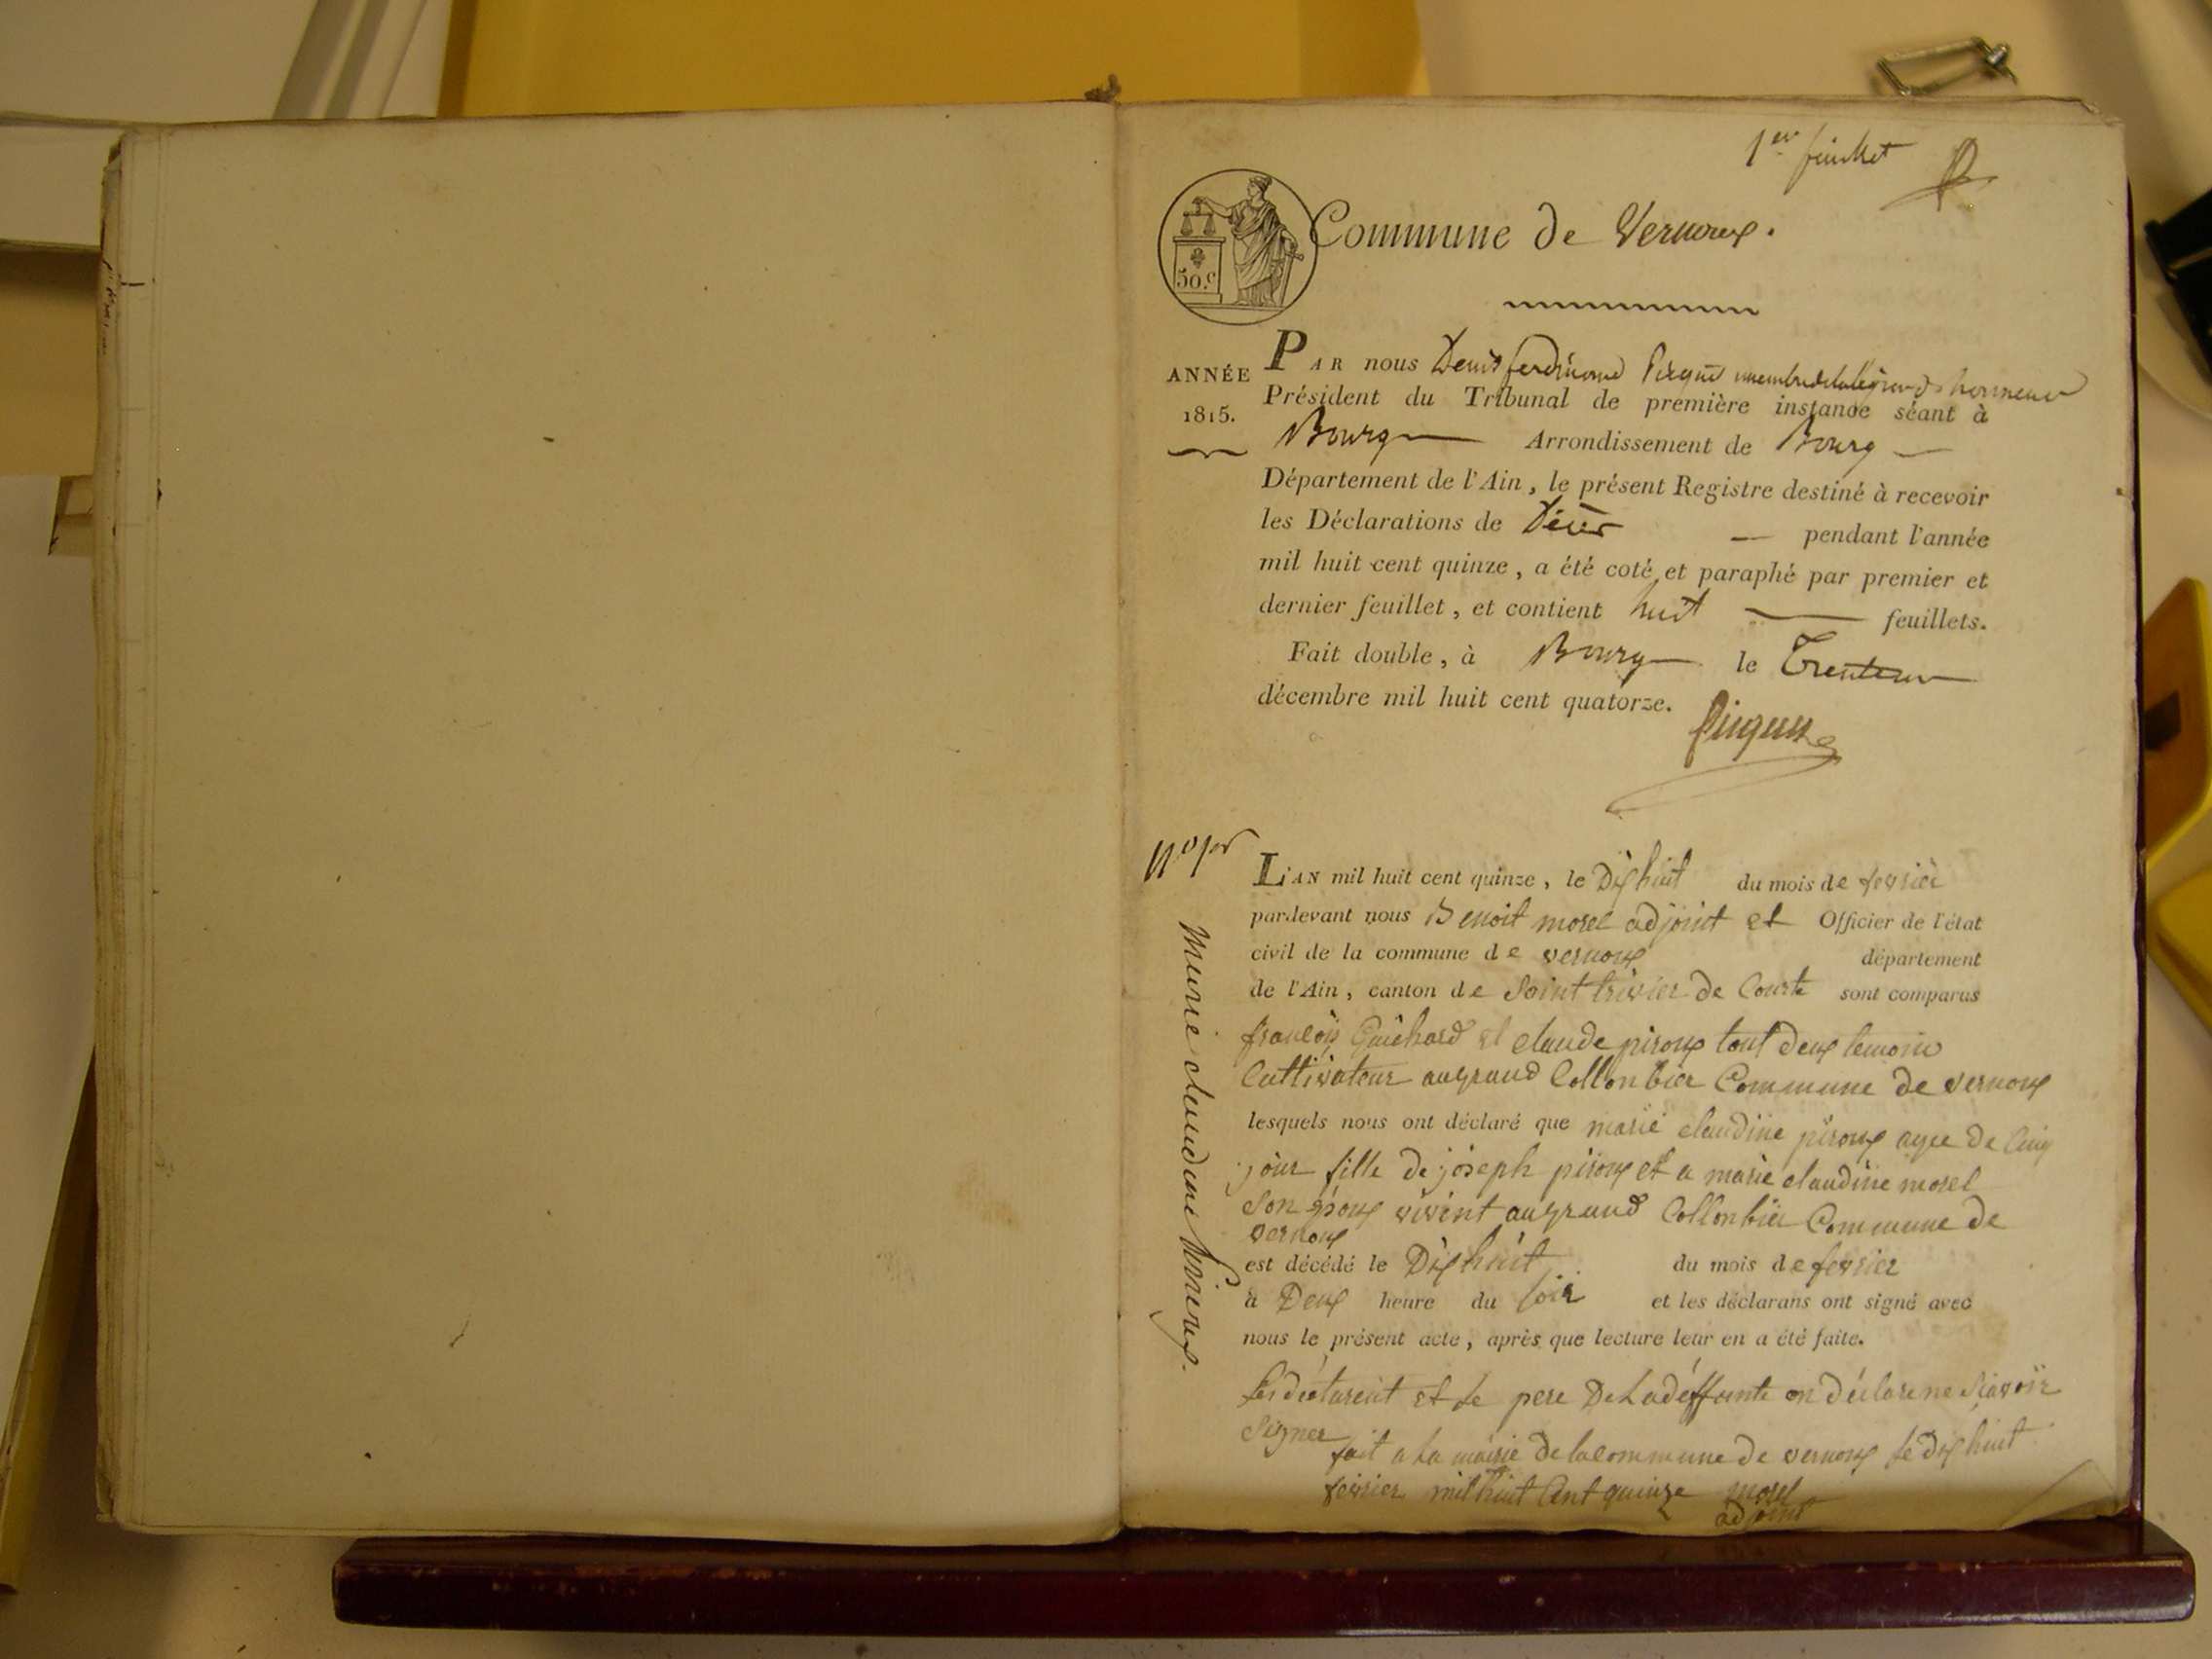 1er feuillet
Commune de Vernoux.
50.c
ANNÉE
1815.
PAR nous Denis ferdinand Picquet membre de la legion d'honneur
Président du Tribunal de première instance séant à
Bourg Arrondissement de Bourg
Département de l'Ain, le présent Registre destiné à recevoir
les Déclarations de Décès — pendant l'année
mil huit cent quinze, a été coté et paraphé par premier et
dernier feuillet, et contient huit — feuillets.
Fait double, à Bourg le Trente un
décembre mil huit cent quatorze.
Picquet
No 1er
marie claudine piroux.
L'AN mil huit cent quinze, le Dix huit du mois de fevrier
pardevant nous Benoit morel adjoint et Officier de l'état
civil de la commune de vernoux département
de l'Ain, canton de Saint trivier de Courte sont comparus
françois Guichard et claude piroux tout deux temoin
Cultivateur augrand Collonbier Commune de vernoux
lesquels nous ont déclaré que marie claudine piroux agee de Cinq
jour fille de joseph piroux et a marie claudine morel
Son epoux vivent augrand Collonbier Commune de
vernoux
est décédé le Dix huit du mois de fevrier
à Deux heure du soir et les déclarans ont signé avec
nous le présent acte, après que lecture leur en a été faite.
Les declareut et le pere De Ladeffunte on déclare ne Sçavoir
Signer
fait a la mairie de lacommune de vernoux le dix huit
fevrier mil huit Cent quinze morel
adjoint